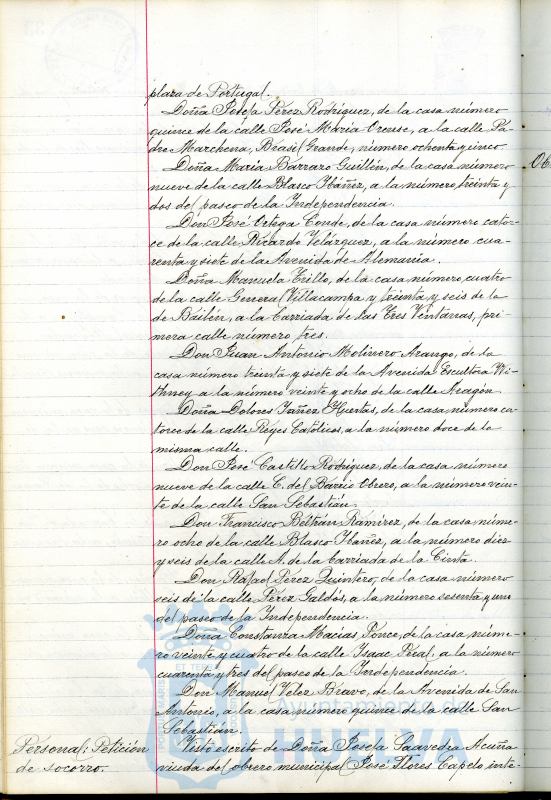 plaza de Portugal.
Doña Josefa Pérez Rodríguez, de la casa número
quince de la calle José María Orense, a la calle Pa-
dre Marchena, Brasil Grande, número ochenta y cinco.
Doña María Barraro Guillén, de la casa número
nueve de la calle Blasco Ibáñez, a la número treinta y
dos del paseo de la Independencia.
Don José Ortega Conde, de la casa número cator-
ce de la calle Ricardo Velázquez, a la número cua-
renta y siete de la Avenida de Alemania.
Doña Manuela Trillo, de la casa número cuatro
de la calle General Villacampa y treinta y seis de la
de Bailén, a la barriada de las Tres Ventanas, pri-
mera calle número tres.
Don Juan Antonio Molinero Arango, de la
casa número treinta y siete de la Avenida Escultora Wi-
thney a la número veinte y ocho de la calle Aragón.
Doña Dolores Yañez Huertas, de la casa número ca-
torce de la calle Reyes Católicos, a la número doce de la
misma calle.
Don José Castillo Rodríguez, de la casa número
nueve de la calle C. del Barrio Obrero, a la número vein-
te de la calle San Sebastián.
Don Francisco Beltrán Ramírez, de la casa núme-
ro ocho de la calle Blasco Ibañez, a la número diez
y seis de la calle A. de la barriada de la Cinta.
Don Rafael Pérez Quintero, de la casa número
seis de la calle Pérez Galdós, a la número sesenta y uno
del paseo de la Independencia.
Doña Constanza Macias Ponce, de la casa núme-
ro veinte y cuatro de la calle Isaac Peral, a la número
cuarenta y tres del paseo de la Independencia.
Don Manuel Velez Bravo, de la Avenida de San
Antonio, a la casa número quince de la calle San
Sebastián.
Personal: Petición
de socorro.
Visto escrito de Doña Josefa Saavedra Acuña
viuda del obrero municipal José Flores Capelo inte-
Ayuntamiento de
HUELVA